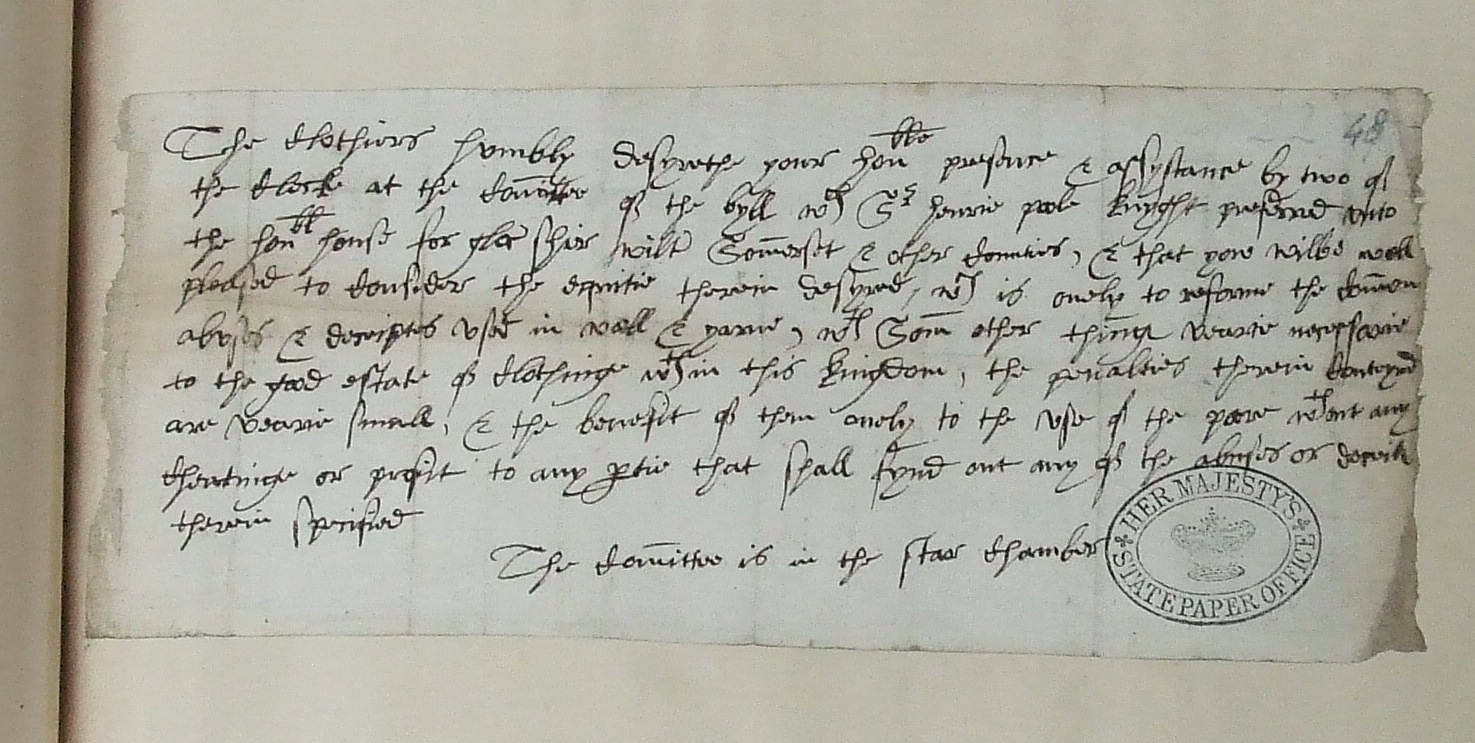 48
The Clothiers humbly desyrethe your honble presence & assystance by two of
the Clocke at the Comittee of the byll wch Sr Henrie poole knyght preferred unto
the honble house for glouc shier wilts Somerset & other Counties, & that yow wilbe well
pleased to Consider the equitie therein desyred, wch is onely to reforme the Common
abuses & deceiptes used in woll & yarne, wth Som other things vearie necessarie
to the good estate of Clothinge wthin this kingdom, the penalties therein Conteyned
are vearie small, & the benefit of them onely to the use of the poore wthout any
Cheatinge or profit to any ptie that shall fynd out any of the abuses or deceit
therein specified
The Comittee is in the star Chamber
HER MAJESTY'S STATE PAPER OFFICE